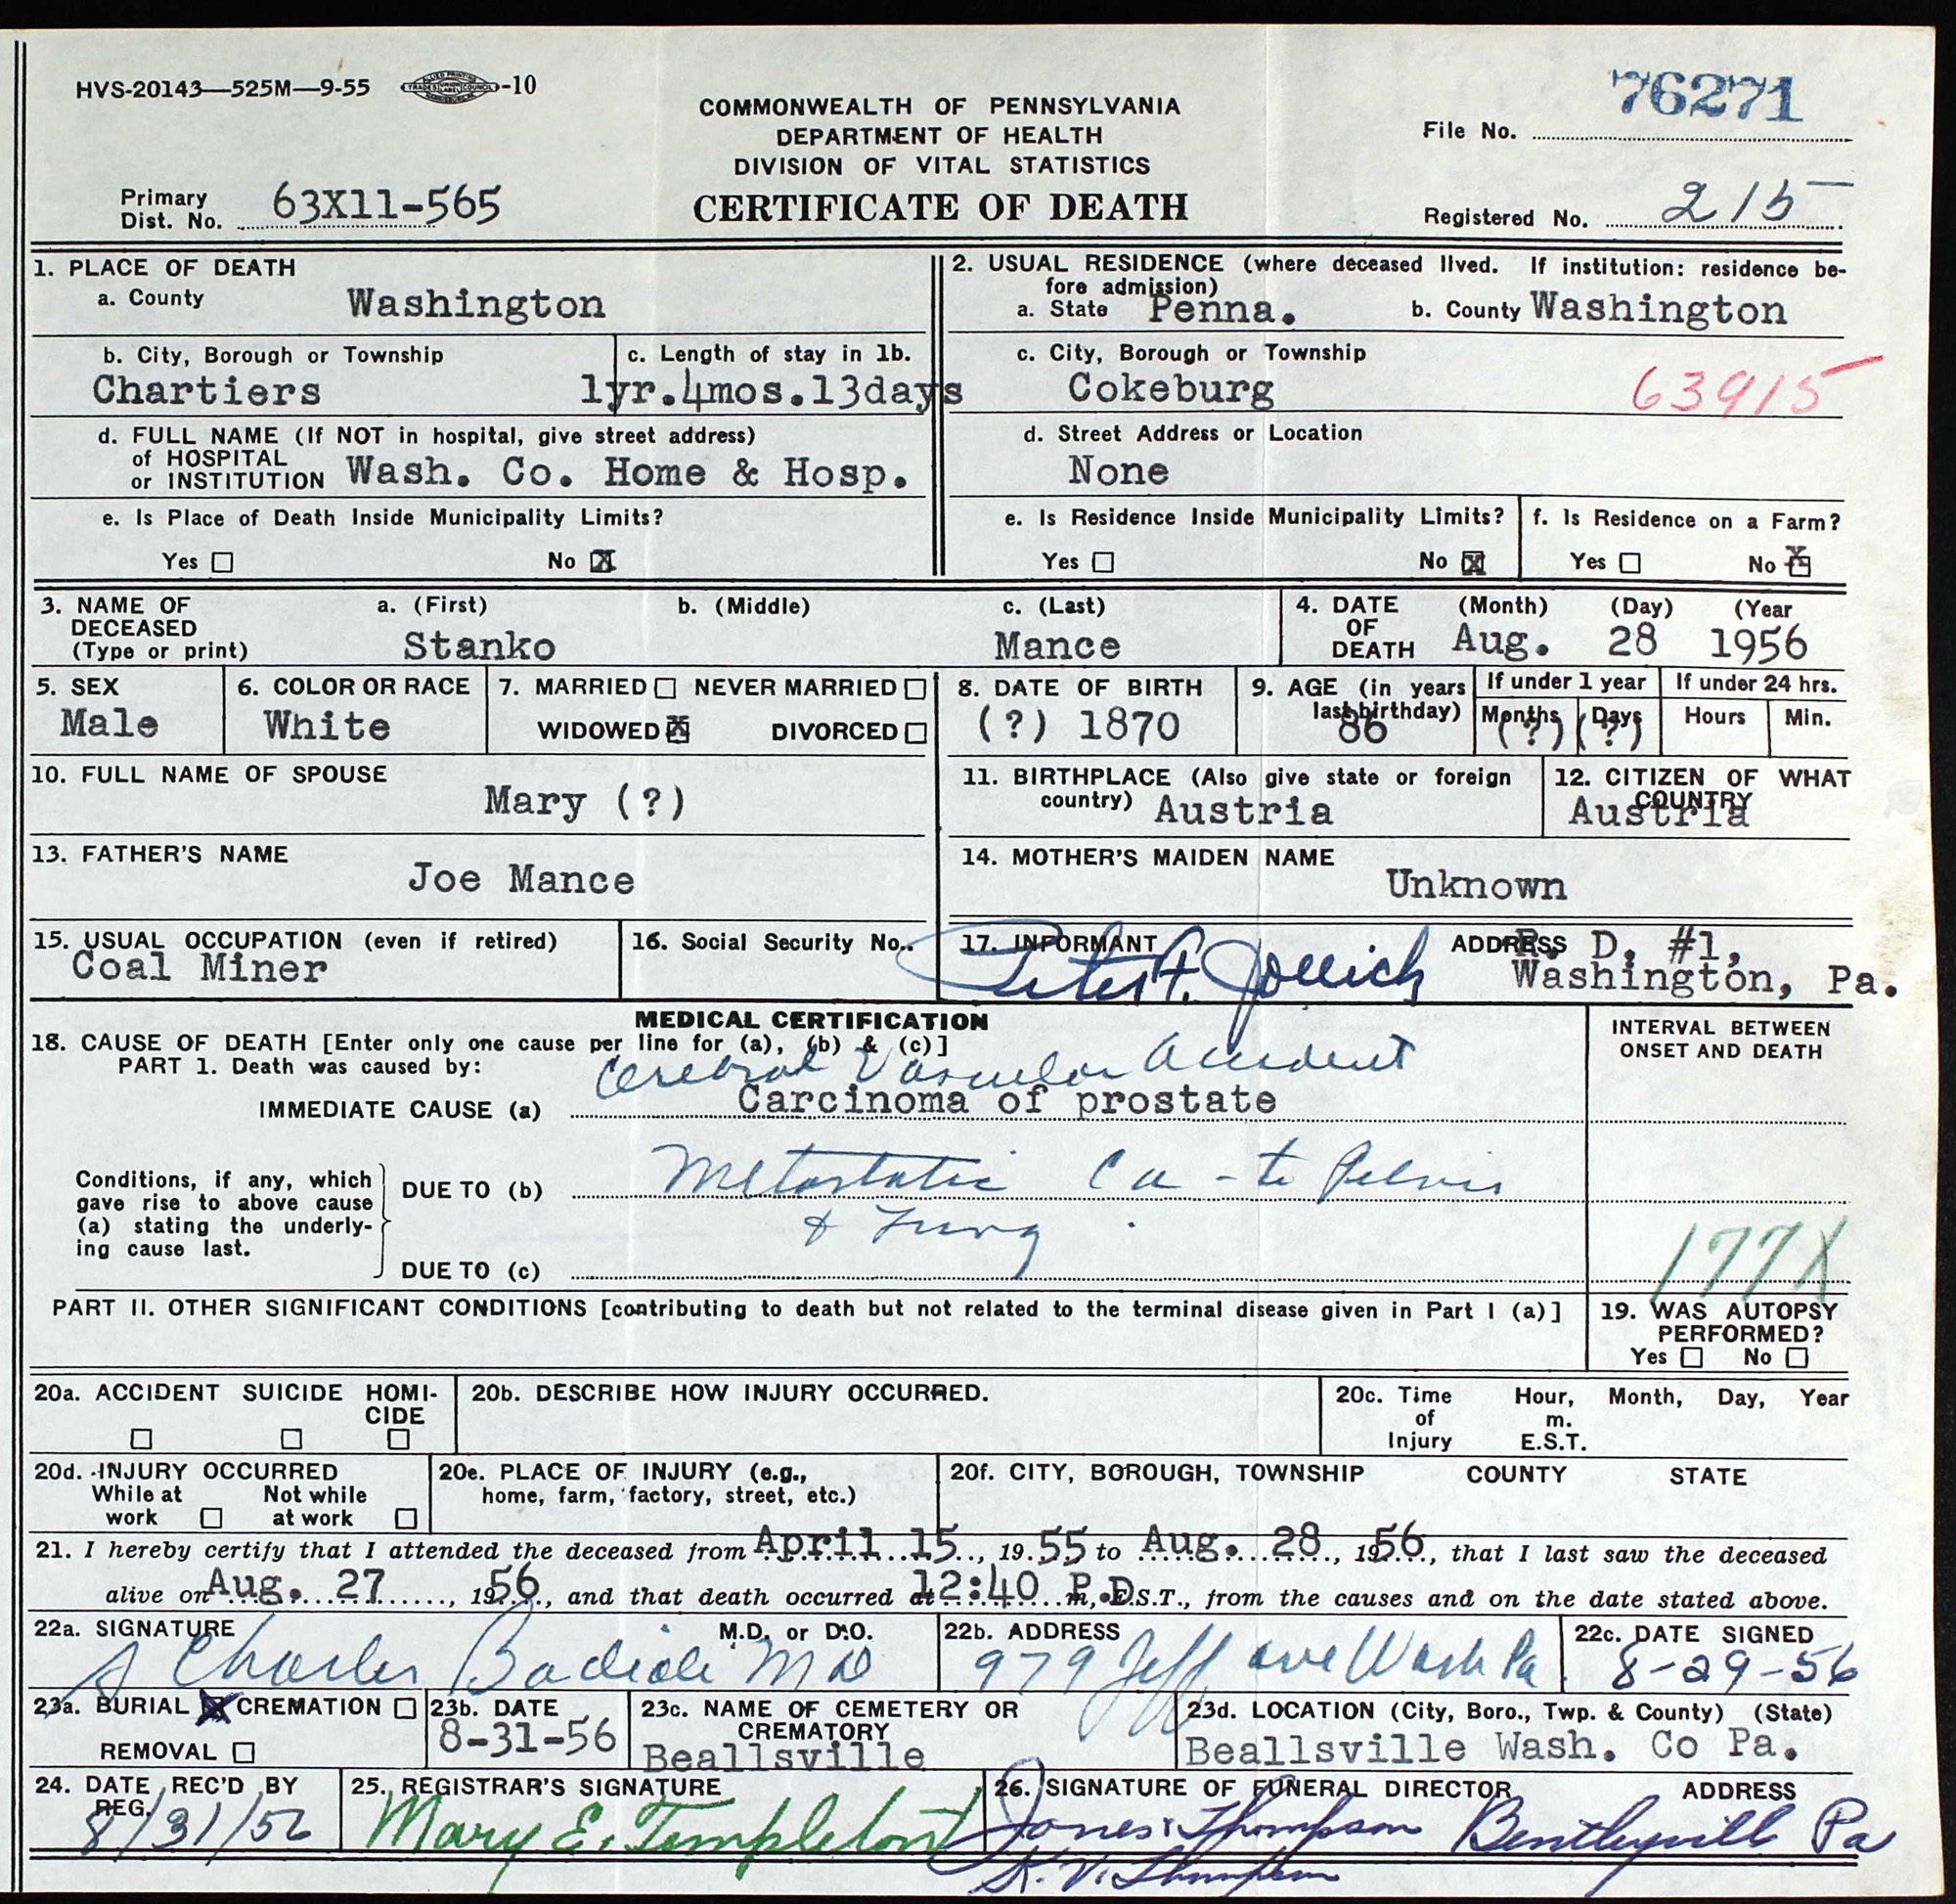 HVS-20143—525M—9-55 -10
76271
COMMONWEALTH OF PENNSYLVANIA
DEPARTMENT OF HEALTH
DIVISION OF VITAL STATISTICS
CERTIFICATE OF DEATH
File No.
Primary Dist. No. 63X11-565
Registered No. 215
1. PLACE OF DEATH
a. County Washington
2. USUAL RESIDENCE (where deceased lived. If institution: residence be-
fore admission)
a. State Penna. b. County Washington
b. City, Borough or Township
Chartiers
c. Length of stay in 1b.
1yr.4mos.13days
c. City, Borough or Township
Cokeburg
63915
d. FULL NAME (If NOT in hospital, give street address)
of HOSPITAL
or INSTITUTION Wash. Co. Home & Hosp.
d. Street Address or Location
None
e. Is Place of Death Inside Municipality Limits?
Yes ☐ No ☒
e. Is Residence Inside Municipality Limits?
Yes ☐ No ☒
f. Is Residence on a Farm?
Yes ☐ No ☒
3. NAME OF DECEASED (Type or print)
a. (First) b. (Middle) c. (Last)
Stanko Mance
4. DATE OF DEATH (Month) (Day) (Year
Aug. 28 1956
5. SEX
Male
6. COLOR OR RACE
White
7. MARRIED ☐ NEVER MARRIED ☐
WIDOWED ☒ DIVORCED ☐
8. DATE OF BIRTH
(?) 1870
9. AGE (in years last birthday)
86
If under 1 year
Months Days
(?) (?)
If under 24 hrs.
Hours Min.
10. FULL NAME OF SPOUSE
Mary (?)
11. BIRTHPLACE (Also give state or foreign
country) Austria
12. CITIZEN OF WHAT
COUNTRY
Austria
13. FATHER'S NAME
Joe Mance
14. MOTHER'S MAIDEN NAME
Unknown
15. USUAL OCCUPATION (even if retired)
Coal Miner
16. Social Security No.
17. INFORMANT
Peter F. Jollick
ADDRESS R. D. #1,
Washington, Pa.
MEDICAL CERTIFICATION
18. CAUSE OF DEATH [Enter only one cause per line for (a), (b) & (c)]
PART 1. Death was caused by:
Cerebral Vascular Accident
IMMEDIATE CAUSE (a) Carcinoma of prostate
INTERVAL BETWEEN
ONSET AND DEATH
Conditions, if any, which
gave rise to above cause
(a) stating the underly-
ing cause last.
DUE TO (b) Metastatic Ca - to Pelvis
& Lung
DUE TO (c)
177X
PART II. OTHER SIGNIFICANT CONDITIONS [contributing to death but not related to the terminal disease given in Part I (a)]
19. WAS AUTOPSY
PERFORMED?
Yes ☐ No ☐
20a. ACCIDENT SUICIDE HOMI-
CIDE
20b. DESCRIBE HOW INJURY OCCURRED.
20c. Time of Injury Hour, Month, Day, Year
m.
E.S.T.
20d. INJURY OCCURRED
While at work ☐ Not while at work ☐
20e. PLACE OF INJURY (e.g.,
home, farm, factory, street, etc.)
20f. CITY, BOROUGH, TOWNSHIP COUNTY STATE
21. I hereby certify that I attended the deceased from April 15, 19 55 to Aug. 28, 1956, that I last saw the deceased
alive on Aug. 27, 1956, and that death occurred at 12:40 P.m, D.S.T., from the causes and on the date stated above.
22a. SIGNATURE M.D. or D.O.
S Charles Badiali MD
22b. ADDRESS
979 Jeff ave Wash Pa.
22c. DATE SIGNED
8-29-56
23a. BURIAL ☒ CREMATION ☐
REMOVAL ☐
23b. DATE
8-31-56
23c. NAME OF CEMETERY OR
CREMATORY
Beallsville
23d. LOCATION (City, Boro., Twp. & County) (State)
Beallsville Wash. Co Pa.
24. DATE REC'D BY
REG.
8/31/56
25. REGISTRAR'S SIGNATURE
Mary E. Templeton
26. SIGNATURE OF FUNERAL DIRECTOR ADDRESS
Jones & Thompson Bentleyville Pa
K. V. Thompson